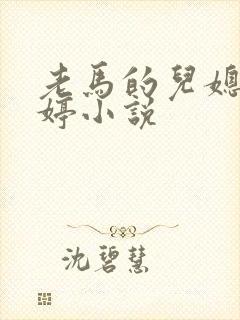 老馬的兒媳
婷小說
沈碧慧